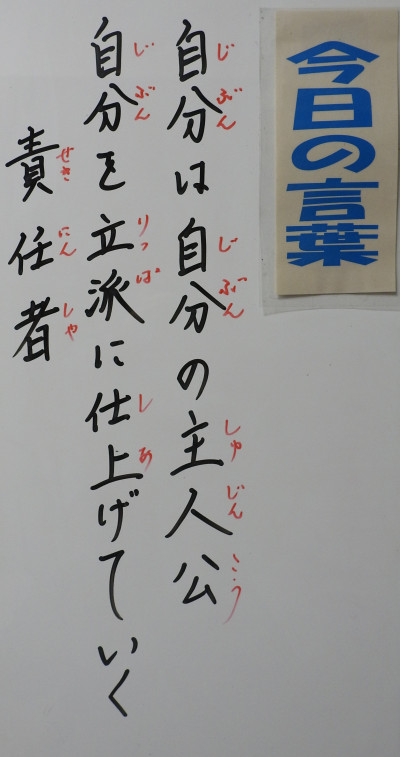 今日の言葉
自分は自分の主人公
自分を立派に仕上げていく
責任者
じぶん
じぶん
しゅじんこう
じぶん
りっぱ
しあ
せきにんしゃ